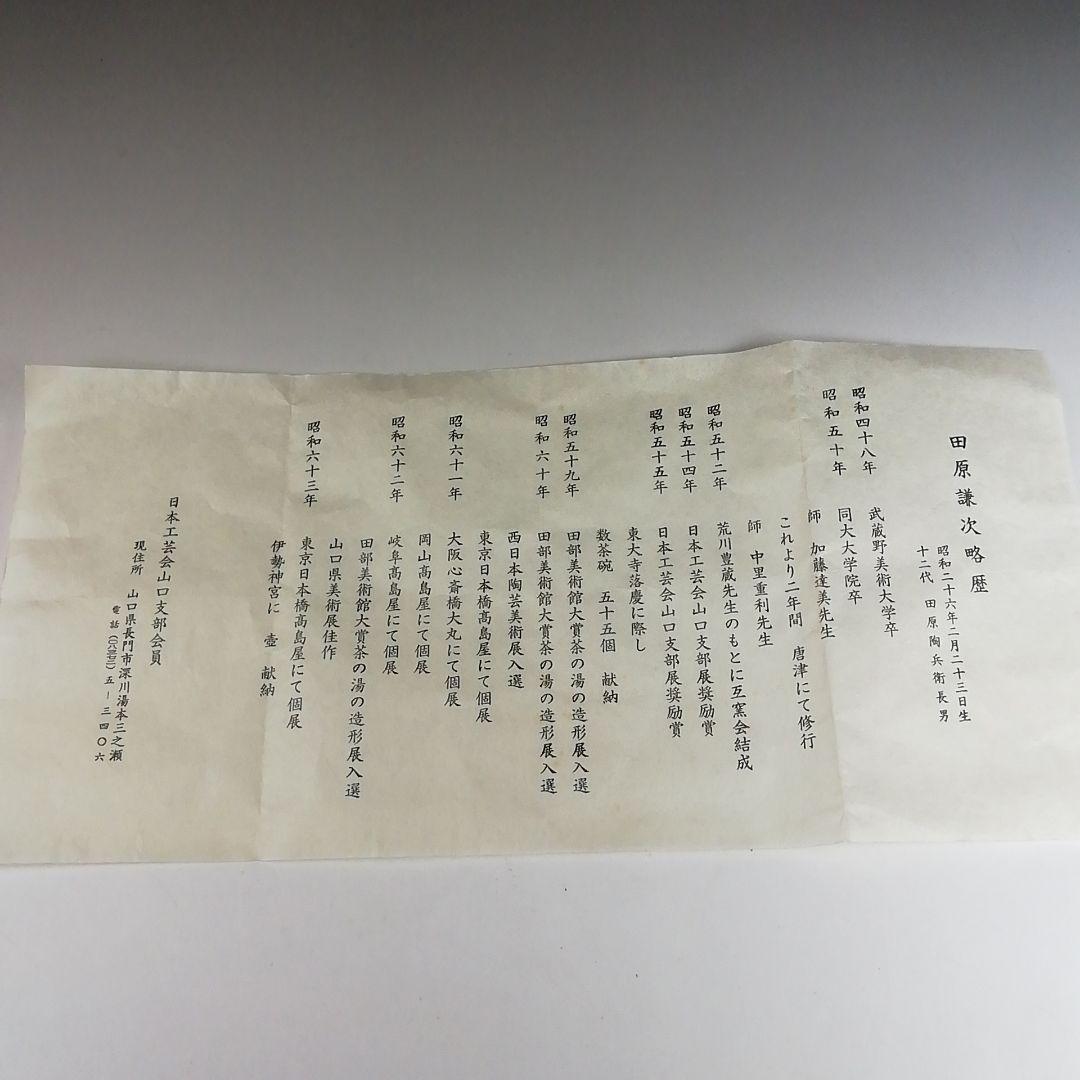 田原謙次略歴
昭和二十六年二月二十三日生
十二代　田原陶兵衛長男
昭和四十八年　武蔵野美術大学卒
昭和五十年　同大大学院卒
師　加藤達美先生
これより二年間　唐津にて修行
師　中里重利先生
昭和五十二年　荒川豊蔵先生のもとに互窯会結成
昭和五十四年　日本工芸会山口支部展奨励賞
昭和五十五年　日本工芸会山口支部展奨励賞
東大寺落慶に際し
数茶碗　五十五個　献納
昭和五十九年　田部美術館大賞茶の湯の造形展入選
昭和六十年　田部美術館大賞茶の湯の造形展入選
西日本陶芸美術展入選
東京日本橋髙島屋にて個展
昭和六十一年　大阪心斎橋大丸にて個展
岡山髙島屋にて個展
昭和六十二年　岐阜髙島屋にて個展
田部美術館大賞茶の湯の造形展入選
山口県美術展佳作
昭和六十三年　東京日本橋髙島屋にて個展
伊勢神宮に　壷　献納
日本工芸会山口支部会員
現住所　山口県長門市深川湯本三之瀬
電話（〇八三七二）五ー三四〇六